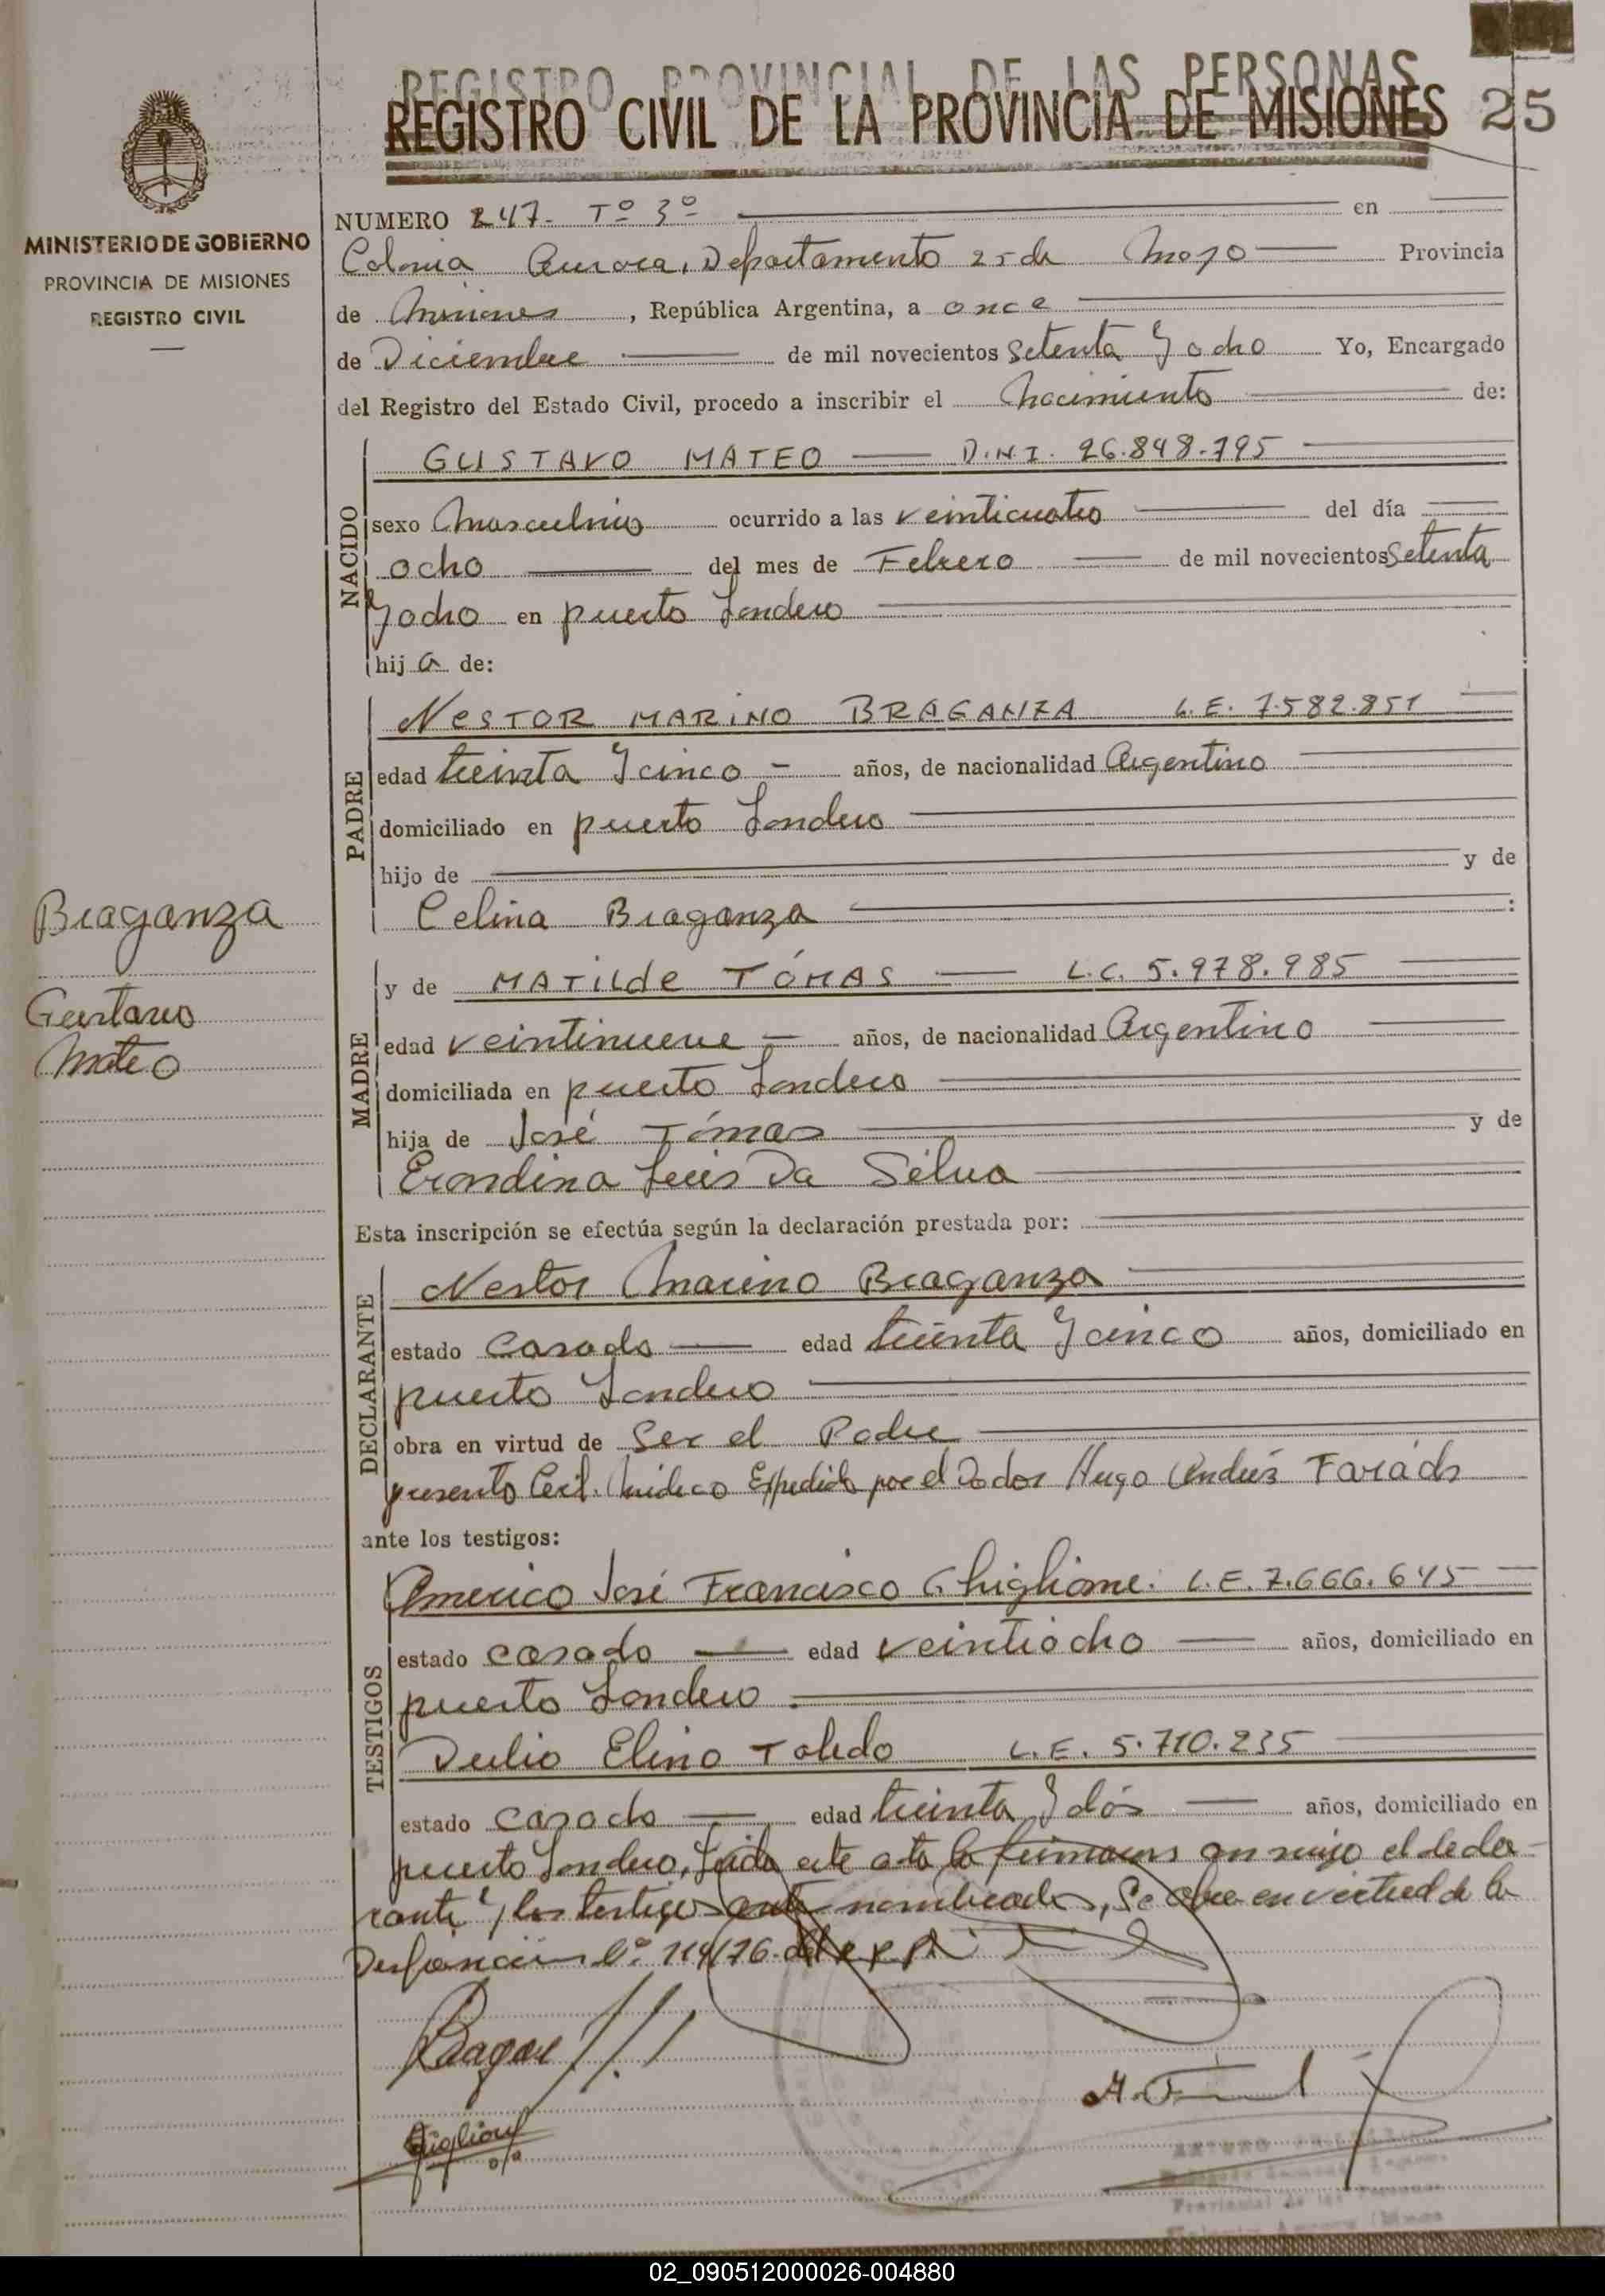 REGISTRO PROVINCIAL DE LAS PERSONAS
REGISTRO CIVIL DE LA PROVINCIA DE MISIONES 25
MINISTERIO DE GOBIERNO
PROVINCIA DE MISIONES
REGISTRO CIVIL
NUMERO 247- Tº 3º en
Colonia Aurora, Departamento 25 de Mayo Provincia
de Misiones, República Argentina, a once
de Diciembre de mil novecientos setenta y ocho Yo, Encargado
del Registro del Estado Civil, procedo a inscribir el Nacimiento de:
NACIDO
GUSTAVO MATEO D.N.I. 26.848.795
sexo Masculino ocurrido a las veinticuatro del día
ocho del mes de Febrero de mil novecientos setenta
y ocho en puerto Londero
hij a de:
PADRE
NESTOR MARINO BRAGANZA L.E. 7.582.851
edad treinta y cinco - años, de nacionalidad Argentino
domiciliado en puerto Londero
hijo de y de
Celina Braganza :
Braganza
Gustavo
Mateo
MADRE
y de MATILDE TÓMAS L.C. 5.978.985
edad veintinueve - años, de nacionalidad Argentino
domiciliada en puerto Londero
hija de José Tómas y de
Erondina Luis Da Silva
Esta inscripción se efectúa según la declaración prestada por:
DECLARANTE
Nestor Marino Braganza
estado casado edad treinta y cinco años, domiciliado en
puerto Londero
obra en virtud de Ser el Padre
presento Cert. Médico Expedido por el Doctor Hugo Andrés
ante los testigos:
TESTIGOS
Americo José Francisco Ghiglione. L.E. 7.666.645
estado casado edad veintiocho años, domiciliado en
puerto Londero
Delio Elino Toledo L.E. 5.710.235
estado casado edad treinta y dós años, domiciliado en
puerto Londero, Leida este acta la firman conmigo el decla-
rante y los testigos ante nombrados, Se obra en virtud de la
02_090512000026-004880